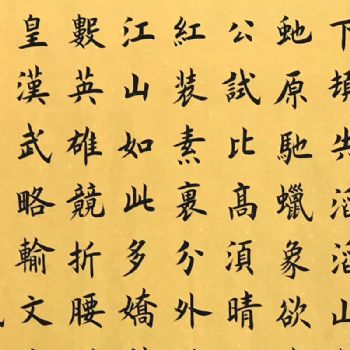 下頓失滔滔山
虵原馳蠟象欲
公試比高須晴
紅裝素裹分外
江山如此多嬌
數英雄競折腰
皇漢武略輸文